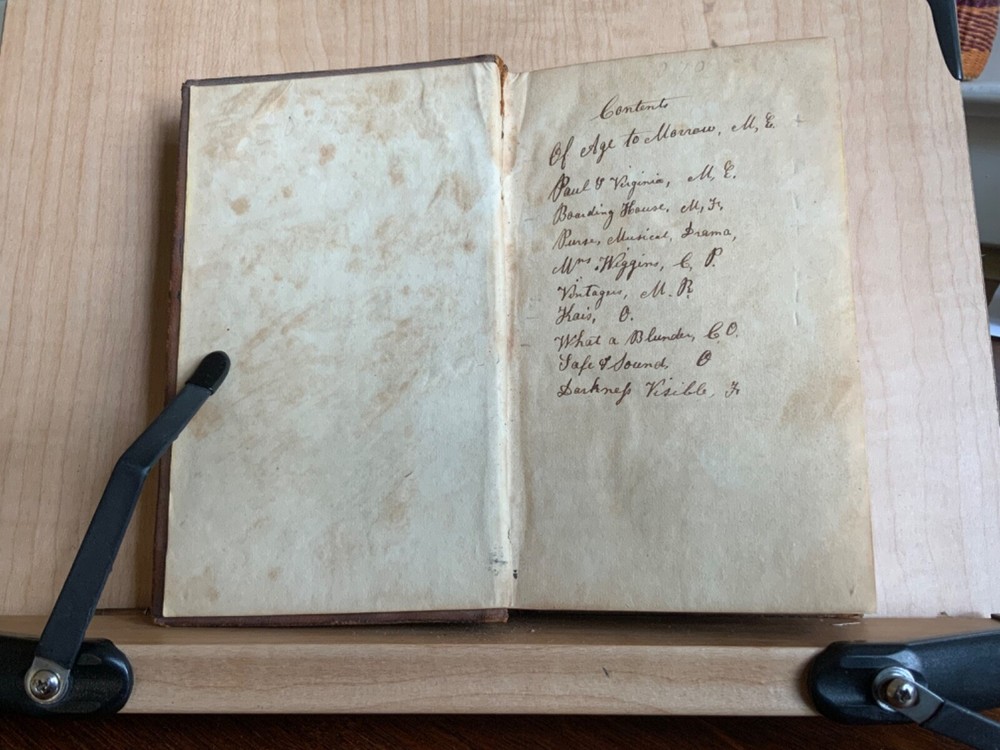 Contents
Of Age to Morrow, M, E.
Paul & Virginia, M, E.
Boarding House, M, Fr,
Purse, Musical, Drama,
Mrs. Wiggins, C, P.
Vintagers, M. R.
Kais, O.
What a Blunder, C O.
Safe & Sound, O
Darkneſs Visible, Fr